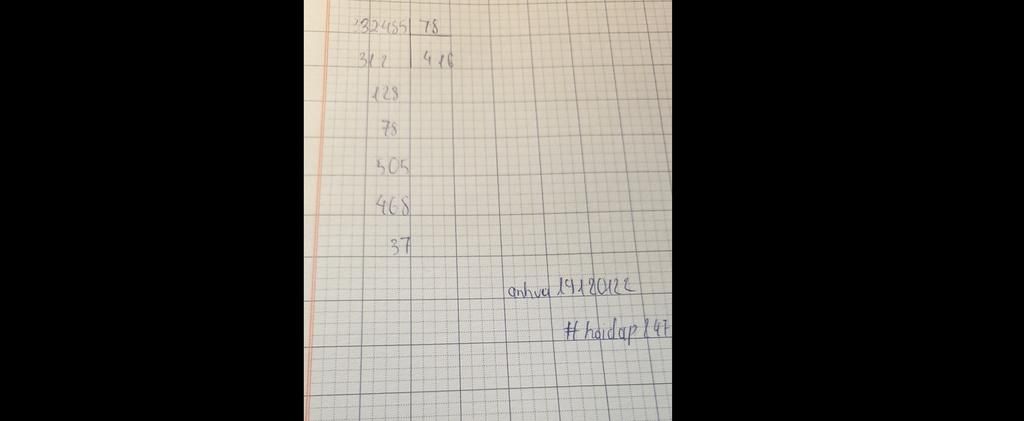 32485 78
312 416
128
78
505
468
37
anhvq 19120122
#hoidap247